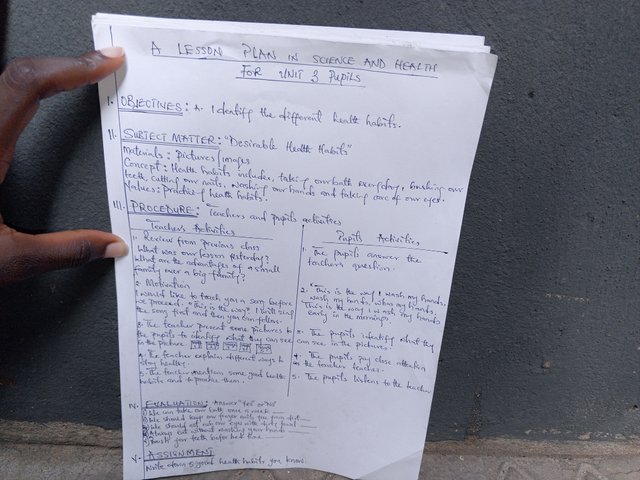 A LESSON PLAN IN SCIENCE AND HEALTH
FOR UNIT 3 PUPILS
I. OBJECTIVES: A. Identify the different health habits.
II. SUBJECT MATTER: "Desirable Health Habits"
Materials: Pictures/images
Concept: Health habits includes, taking our bath everyday, brushing our
teeth, cutting our nails, washing our hands and taking care of our eyes.
Values: Practicing health habits.
III. PROCEDURE: Teachers and pupils activities
Teachers Activities
1. Review from previous class
What was our lesson yesterday?
What are the advantages of a small
family over a big family?
2. Motivation
I would like to teach you a song before
we proceed. "This is the way" I will sing
the song first and then you follow
3. The teacher present some pictures to
the pupils to identify what they can see
in the picture
4. The teacher explain different ways to
stay healthy.
5. The teacher mention some good health
habits and to practice them.
Pupils Activities
1. The pupils answer the
teachers question.
2. "This is the way I wash my hands,
wash my hands, wash my hands,
This is the way I wash my hands
early in the morning.
3. The pupils identify what they
can see in the pictures.
4. The pupils pay close attention
as the teacher teaches.
5. The pupils listens to the teacher
IV. EVALUATION: Answer "Yes" or "No"
1) We can take our bath once a week
2) We should keep our finger nails free from dirt
3) We should not rub our eyes with dirty hand
4) Always eat without washing your hands
5) Brush your teeth before bed time
V. ASSIGNMENT
Write down 5 good health habits you know.